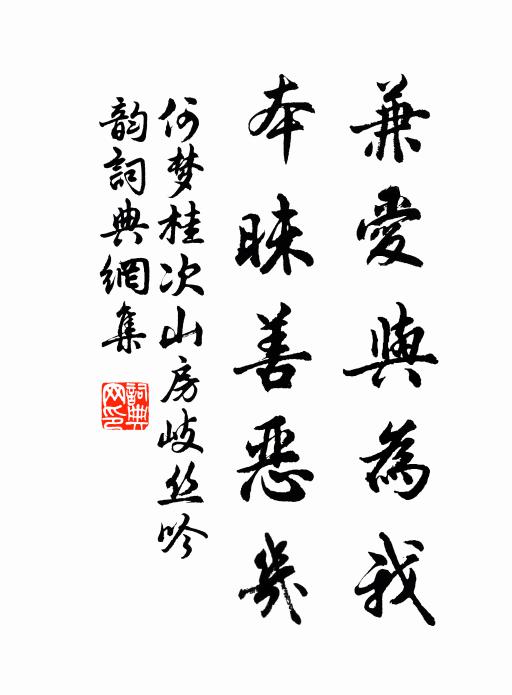 兼愛與為我
本昧善惡幾
何梦桂次山房岐丝吟
韵詞典網集
詞典網印